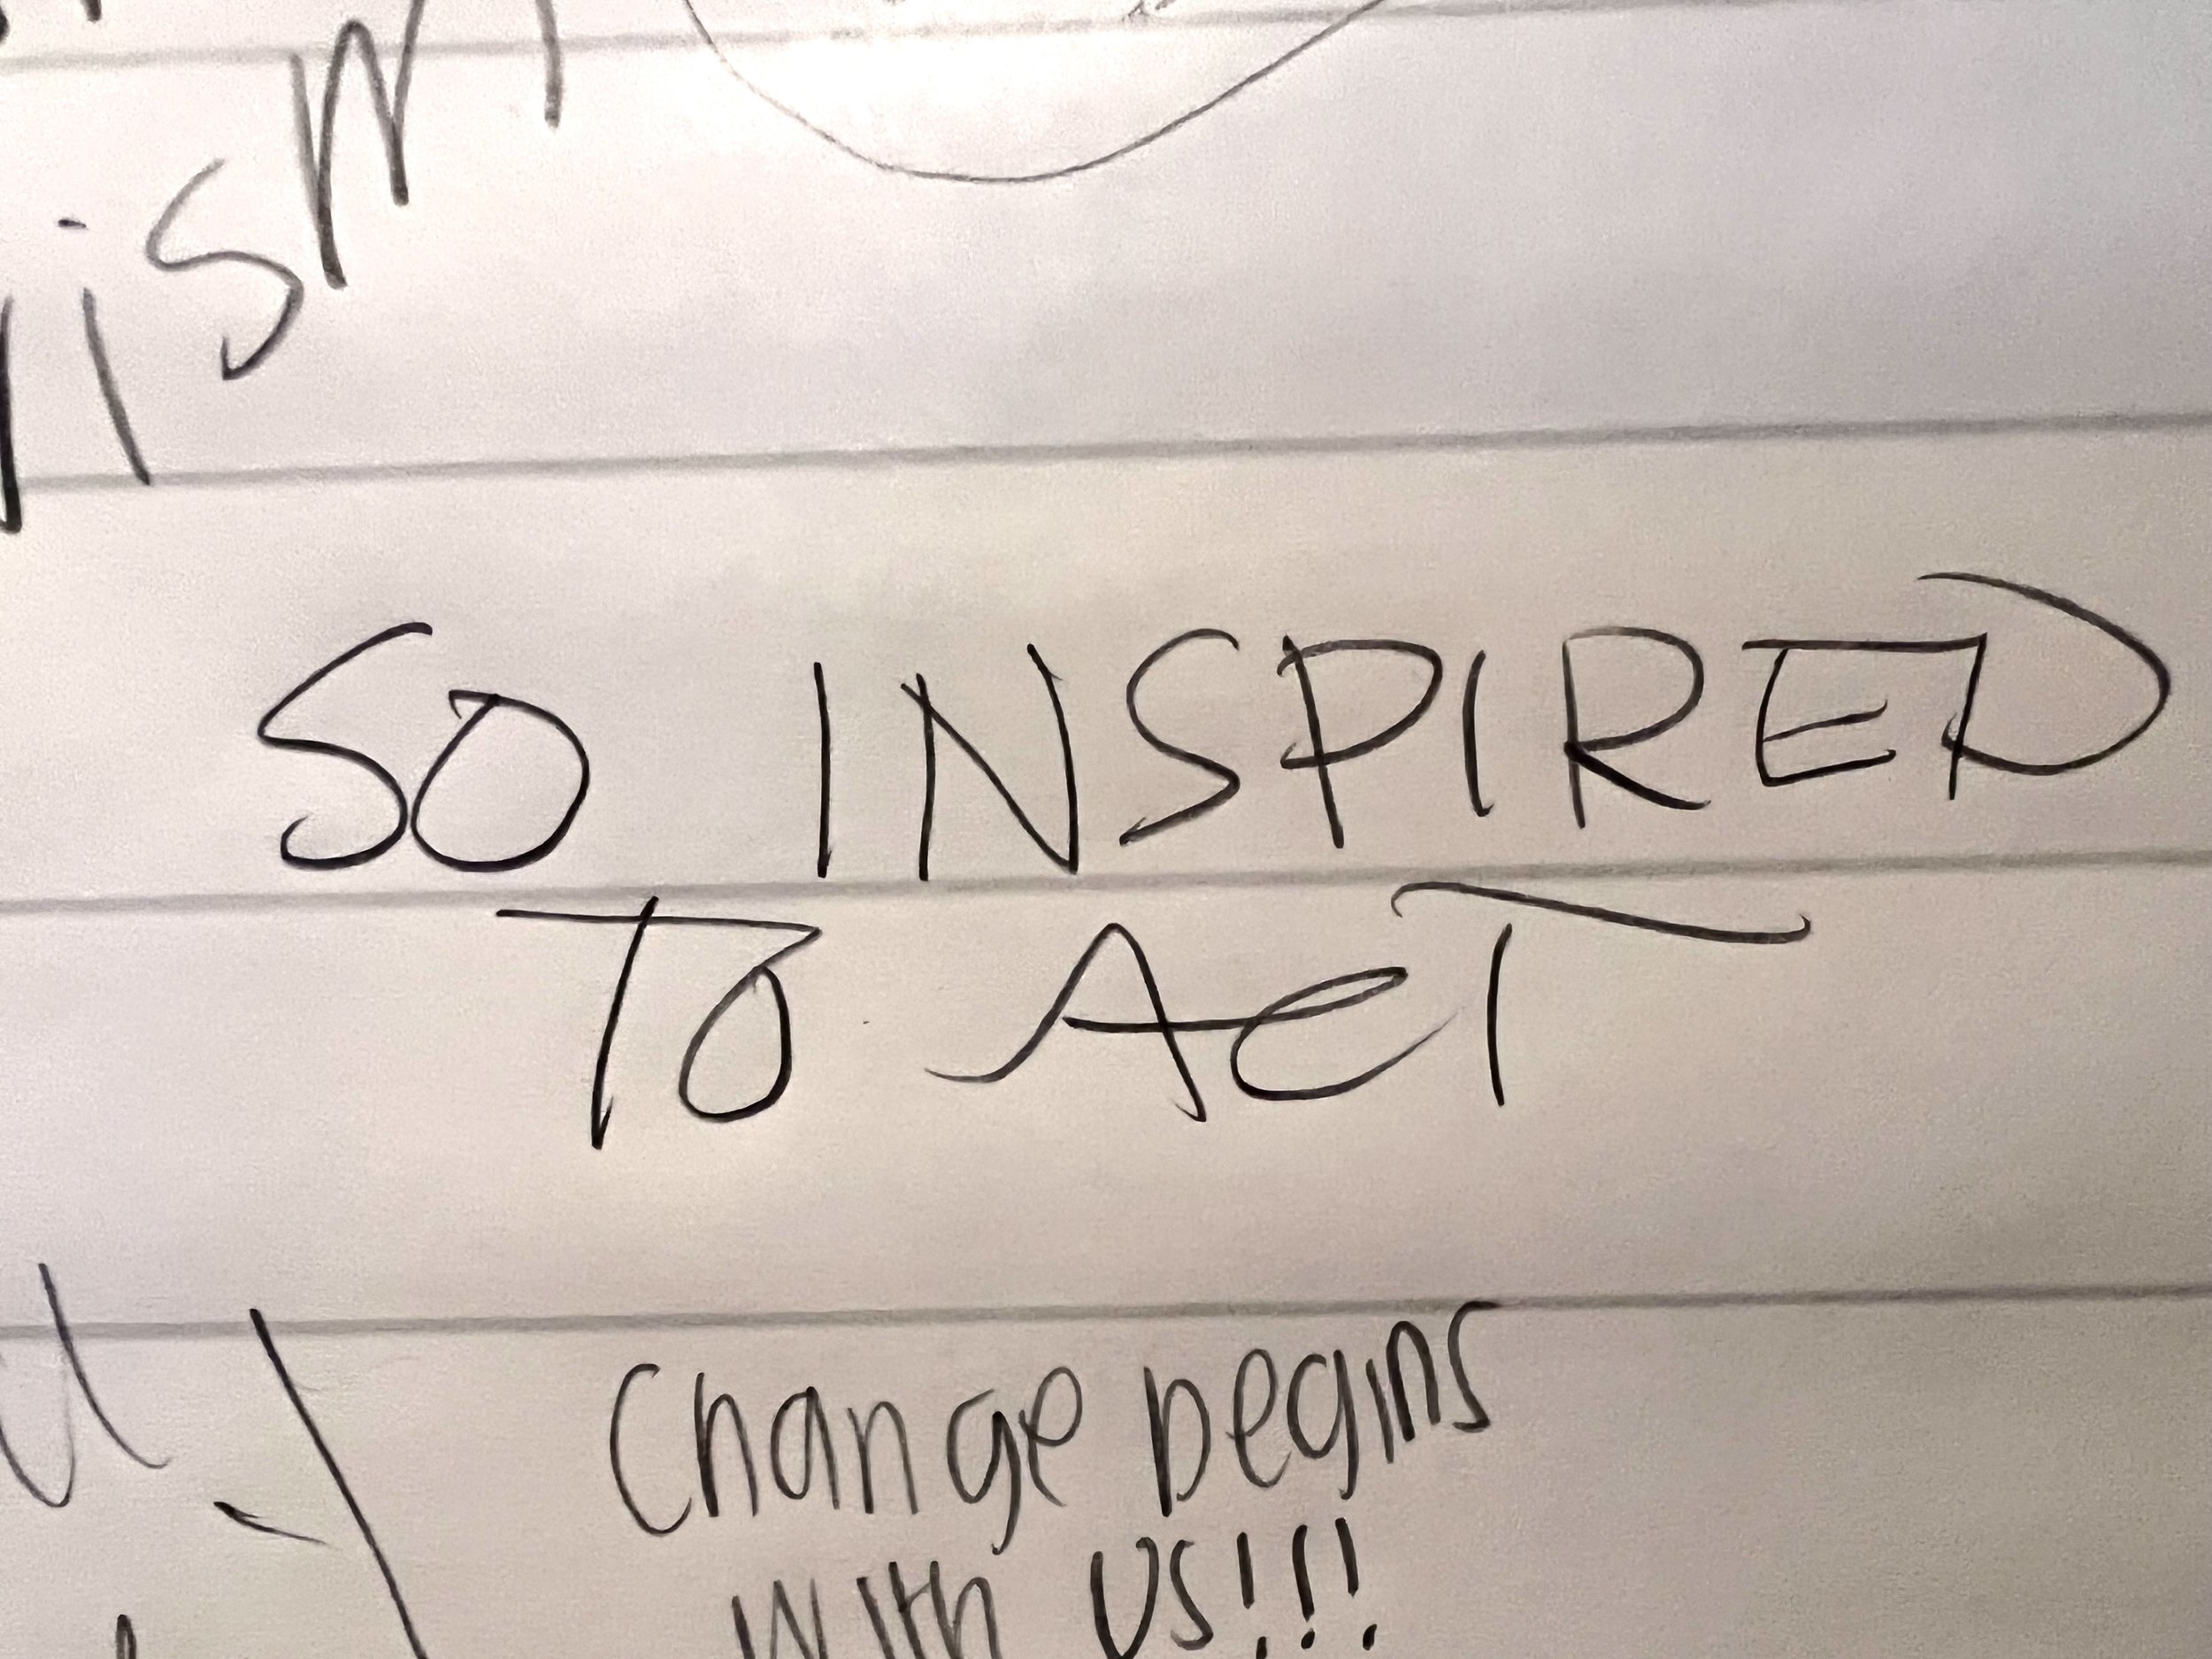 SO INSPIRED
TO ACT
Change begins
with us!!!